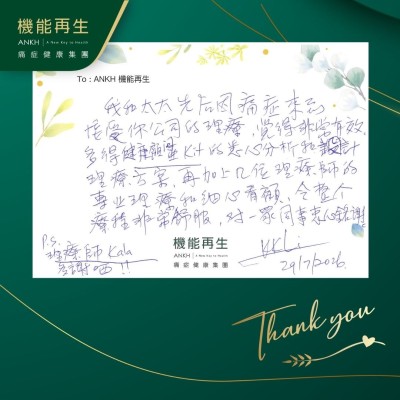 機能再生
ANKH | A New Key to Health
痛症健康集團
To : ANKH 機能再生
我和太太先后因痛症來到
接受你公司的理療，覺得非常有效，
多得健康顧問Kit的悉心分析和設計
理療方案，再加上几位理療師的
專業理療和細心有願，令整个
療程非常舒服，对一眾同事衷心銘謝！
機能再生
ANKH | A New Key to Health
痛症健康集團
P.S.
理療師Kala
多謝晒!!
KKLi
29/7/2026
Thank you